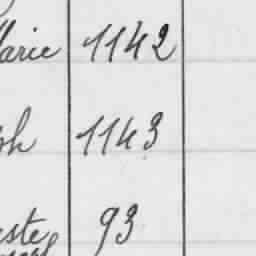 Marie 1142
ph 1143
este 93